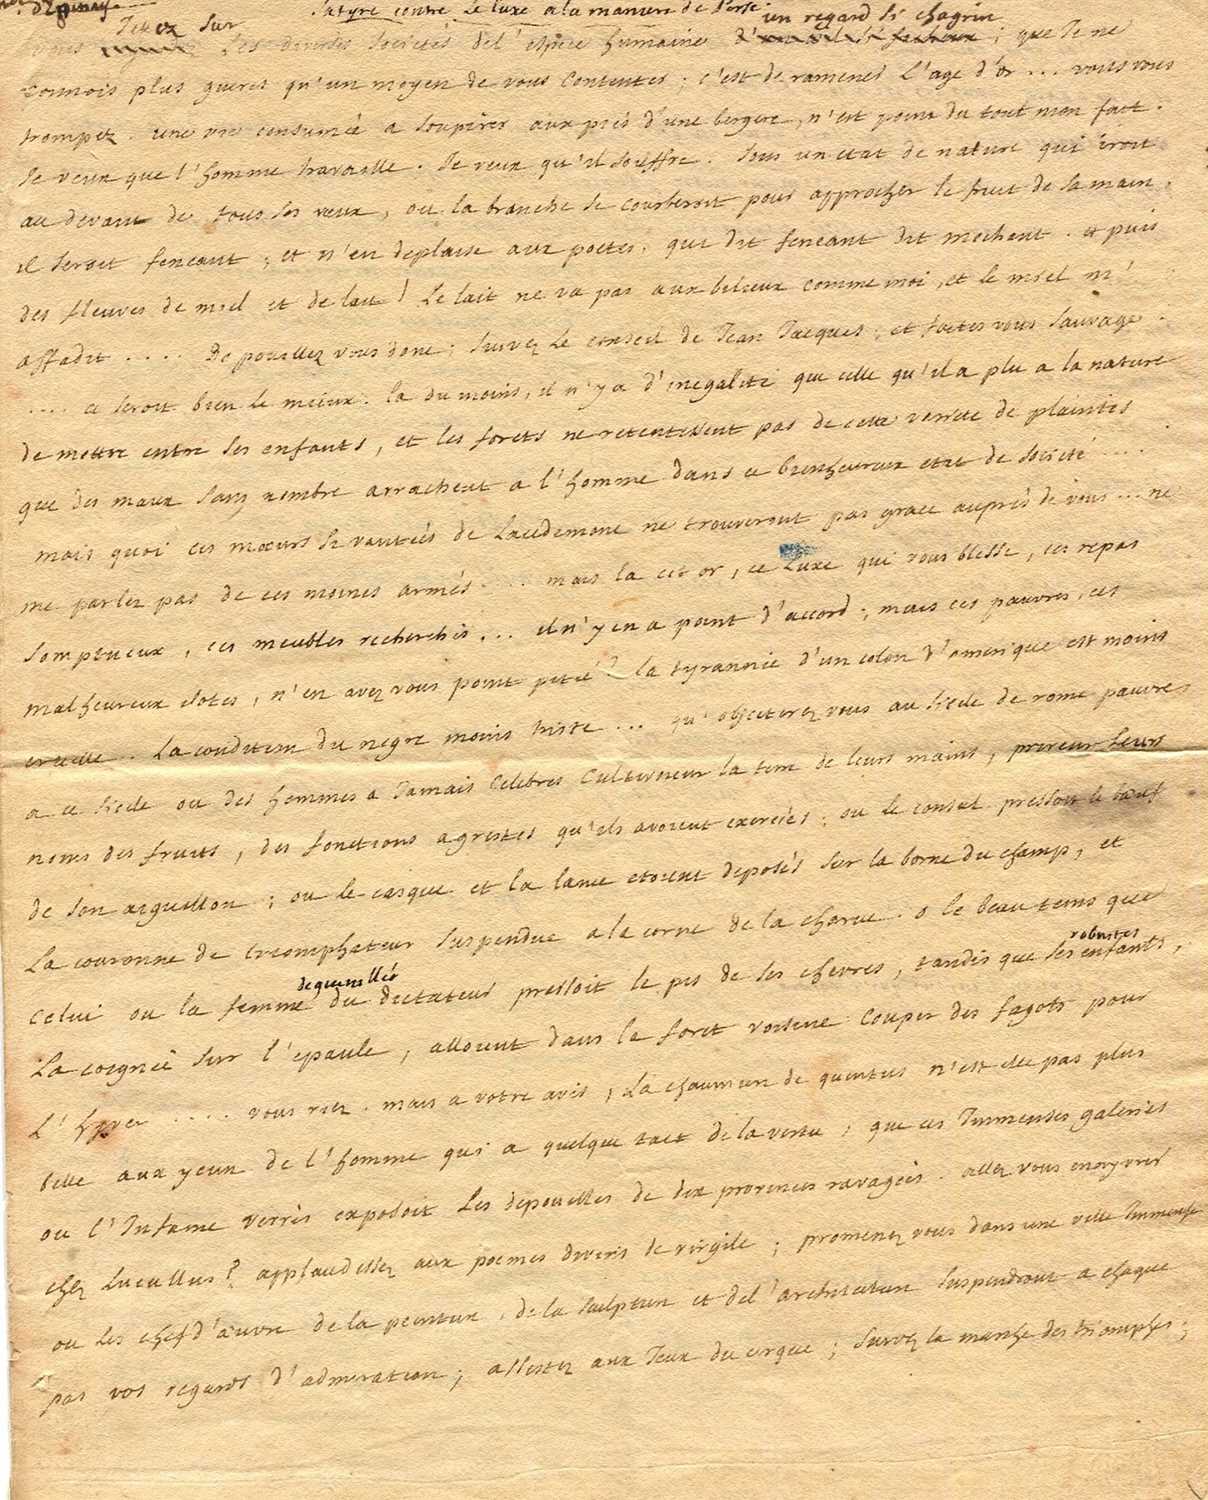 d'Epinay
Satyre contre le luxe a la maniere de Perse.
Jettez sur un regard si chagrin
Vous les diverses societés de l'espece humaine ; que Je ne
connois plus gueres qu'un moyen de vous contenter ; c'est de ramener l'age d'or ... vous vous
trompez. une vie consumée a soupirer aux pies d'une bergere, n'est point du tout mon fait.
Je veux que l'homme travaille. Je veux qu'il souffre. sous un etat de nature qui iroit
au devant de tous ses vœux, ou la branche se courberoit pour approcher le fruit de sa main,
il seroit feneant ; et n'en deplaise aux poetes, qui dit feneant dit mechant. et puis
des fleuves de miel et de lait ! Le lait ne va pas aux bilieux comme moi, et le miel m'
affadit .... De pouillez vous donc ; suivez le conseil de Jean Jacques ; et faites vous sauvage.
.... ce seroit bien le mieux. la du moins, il n'y a d'inegalité que celle qu'il a plu a la nature
de mettre entre ses enfants, et les forets ne retentissent pas de cette varieté de plaintes
que des maux sans nombre arrachent a l'homme dans ce bienheureux etat de société ....
mais quoi ces mœurs si vantées de Lacedemone ne trouveront pas grace auprès de vous ... ne
me parlez pas de ces moines armés ... mais la cet or, ce Luxe qui vous blesse, ces repas
somptueux, ces meubles recherchés ... il n'y en a point d'accord ; mais ces pauvres, ces
malheureux ilotes, n'en avez vous point pitié ? la tyrannie d'un colon d'amerique est moins
cruelle. La condition du negre moins triste ... qu'objecterez vous au siecle de rome pauvre
a ce siecle ou des hommes a Jamais celebres cultivoient la terre de leurs mains, prirent leurs
noms des fruits, des fonctions agrestes qu'ils avoient exercées ; ou le consul pressoit le bœuf
de son aiguillon ; ou le casque et la lance etoient deposés sur la borne du champ, et
La couronne de triomphateur suspendue a la corne de la charue. o le beau tems que
celui ou la femme deguenillée du dictateur pressoit le pis de ses chevres, tandis que ses robustes enfants,
La coignée sur l'epaule, alloient dans la foret voisine couper des fagots pour
L'hyver .... vous riez. mais a votre avis, La chaumiere de quintus n'est elle pas plus
belle aux yeux de l'homme qui a quelque tact de la vertu, que ces Immenses galeries
ou l'Infame Verrès exposoit Les depouilles de dix provinces ravagées. allez vous enyvrer
chez Lucullus ? applaudissez aux poemes divins de virgile ; promenez vous dans une ville Immense
ou Les chef d'œuvre de la peinture, de la sculpture et de l'architecture suspendront a chaque
pas vos regards d'admiration ; assistez aux Jeux du cirque ; suivez la marche des triomphes ;